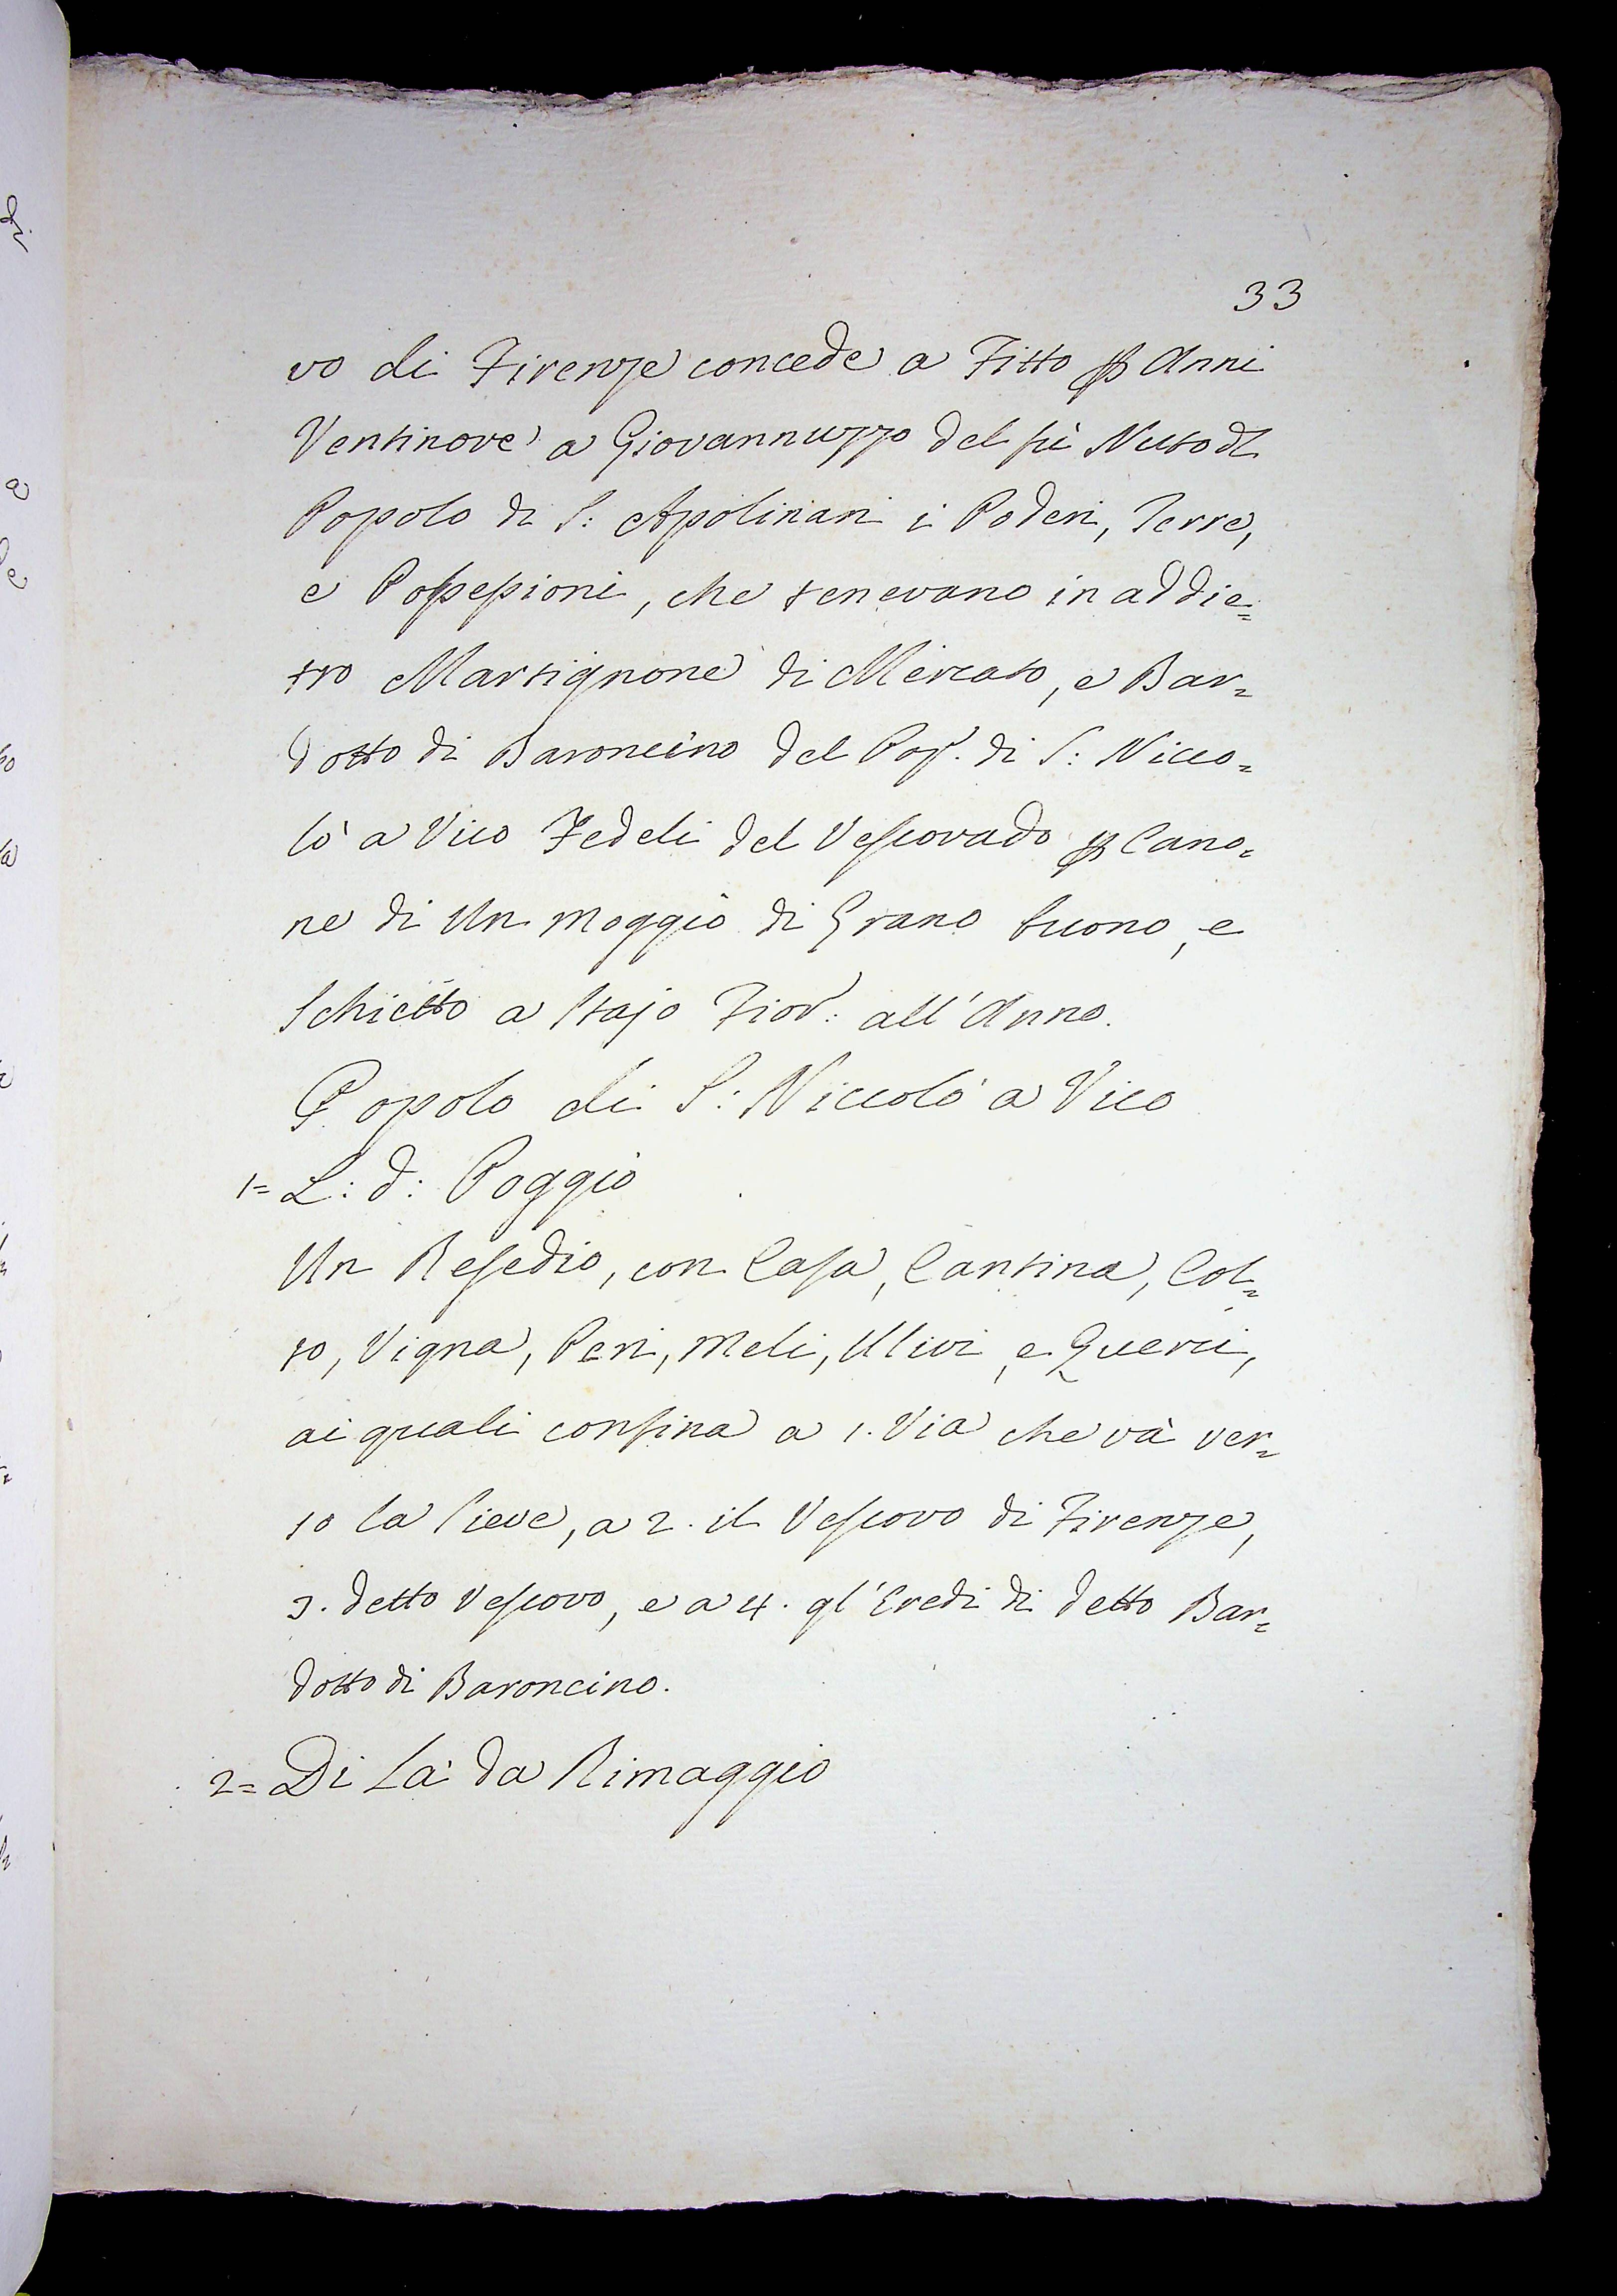 33
vo di Firenze concede a Fitto p Anni
Ventinove a Giovannuzzo del fù Nuto dl
Popolo di S: Apolinari i Poderi, Terre,
e Possessioni, che tenevano in addie=
tro Martignone di Mercato, e Bar=
dotto di Baroncino del Pop. di S: Nicco=
lò a Vico Fedeli del Vescovado p Cano=
ne di Un moggio di Grano buono, e
Schietto a Stajo Fior: all'Anno.
Popolo di S: Niccolò a Vico
1= L: d: Poggio
Un Resedio, con Casa, Cantina, Col=
to, Vigna, Peri, Meli, Ulivi, e Querci,
ai quali confina a 1. Via che và ver=
so la Pieve, a 2. il Vescovo di Firenze,
3. detto Vescovo, e a 4. gl'Eredi di detto Bar=
dotto di Baroncino.
2= Di Là da Rimaggio